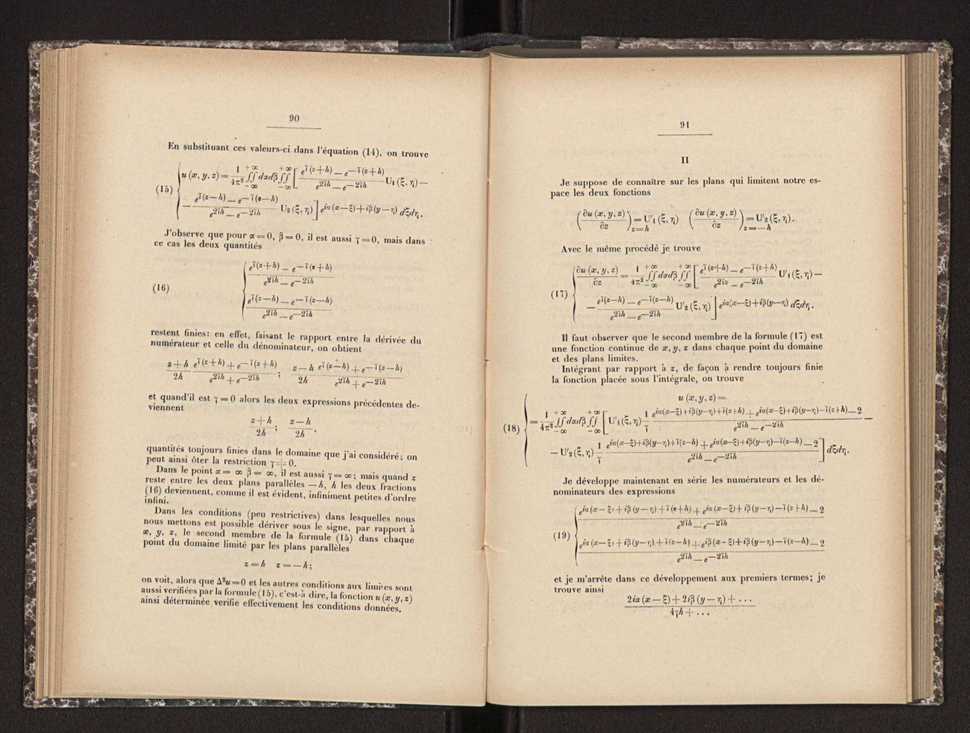 90
En substituant ces valeurs-ci dans l'équation (14), on trouve
(15) { u (x, y, z) = 1/4π² ∫∫ dαdβ ∫∫ [ e^γ(z+h) — e^—γ(z+h) / e^2γh — e^—2γh U₁ (ξ, η) —
— e^γ(z—h) — e^—γ(z—h) / e^2γh — e^—2γh U₂ (ξ, η) ] e^iα(x—ξ)+iβ(y—η) dξdη.
J'observe que pour α = 0, β = 0, il est aussi γ = 0, mais dans
ce cas les deux quantités
(16) { e^γ(z+h) — e^—γ(z+h) / e^2γh — e^—2γh
e^γ(z—h) — e^—γ(z—h) / e^2γh — e^—2γh
restent finies: en effet, faisant le rapport entre la dérivée du
numérateur et celle du dénominateur, on obtient
z + h / 2h e^γ(z+h) + e^—γ(z+h) / e^2γh + e^—2γh ; z — h / 2h e^γ(z—h) + e^—γ(z—h) / e^2γh + e^—2γh
et quand'il est γ = 0 alors les deux expressions précédentes de-
viennent
z + h / 2h ; z — h / 2h .
quantités toujours finies dans le domaine que j'ai considéré; on
peut ainsi ôter la restriction γ ≠ 0.
Dans le point α = ∞ β = ∞, il est aussi γ = ∞; mais quand z
reste entre les deux plans parallèles — h, h les deux fractions
(16) deviennent, comme il est évident, infiniment petites d'ordre
infini.
Dans les conditions (peu restrictives) dans lesquelles nous
nous mettons est possible dériver sous le signe, par rapport à
x, y, z, le second membre de la formule (15) dans chaque
point du domaine limité par les plans parallèles
z = h z = — h;
on voit, alors que Δ²u = 0 et les autres conditions aux limites sont
aussi verifiées par la formule (15), c'est-à dire, la fonction u (x, y, z)
ainsi déterminée verifie effectivement les conditions données.
91
II
Je suppose de connaître sur les plans qui limitent notre es-
pace les deux fonctions
(∂u (x, y, z) / ∂z) z=h = U'₁ (ξ, η) (∂u (x, y, z) / ∂z) z=—h = U'₂ (ξ, η).
Avec le même procédé je trouve
(17) { ∂u (x, y, z) / ∂z = 1/4π² ∫∫ dαdβ ∫∫ [ e^γ(z+h) — e^—γ(z+h) / e^2γz — e^—2γh U'₁ (ξ, η) —
— e^γ(z—h) — e^—γ(z—h) / e^2γh — e^—2γh U'₂ (ξ, η) ] e^iα(x—ξ)+iβ(y—η) dξdη.
Il faut observer que le second membre de la formule (17) est
une fonction continue de x, y, z dans chaque point du domaine
et des plans limites.
Intégrant par rapport à z, de façon à rendre toujours finie
la fonction placée sous l'intégrale, on trouve
u (x, y, z) =
(18) { = 1/4π² ∫∫ dαdβ ∫∫ [ U'₁ (ξ, η) 1/γ e^iα(x—ξ)+iβ(y—η)+γ(z+h) + e^iα(x—ξ)+iβ(y—η)—γ(z+h) — 2 / e^2γh — e^—2γh —
— U'₂ (ξ, η) 1/γ e^iα(x—ξ)+iβ(y—η)+γ(z—h) + e^iα(x—ξ)+iβ(y—η)—γ(z—h) — 2 / e^2γh — e^—2γh ] dξdη.
Je développe maintenant en série les numérateurs et les dé-
nominateurs des expressions
(19) { e^iα(x—ξ)+iβ(y—η)+γ(z+h) + e^iα(x—ξ)+iβ(y—η)—γ(z+h) — 2 / e^2γh — e^—2γh
e^iα(x—ξ)+iβ(y—η)+γ(z—h) + e^iβ(x—ξ)+iβ(y—η)—γ(z—h) — 2 / e^2γh — e^—2γh
et je m'arrête dans ce développement aux premiers termes; je
trouve ainsi
2iα (x — ξ) + 2iβ (y — η) + ... / 4γh + ...